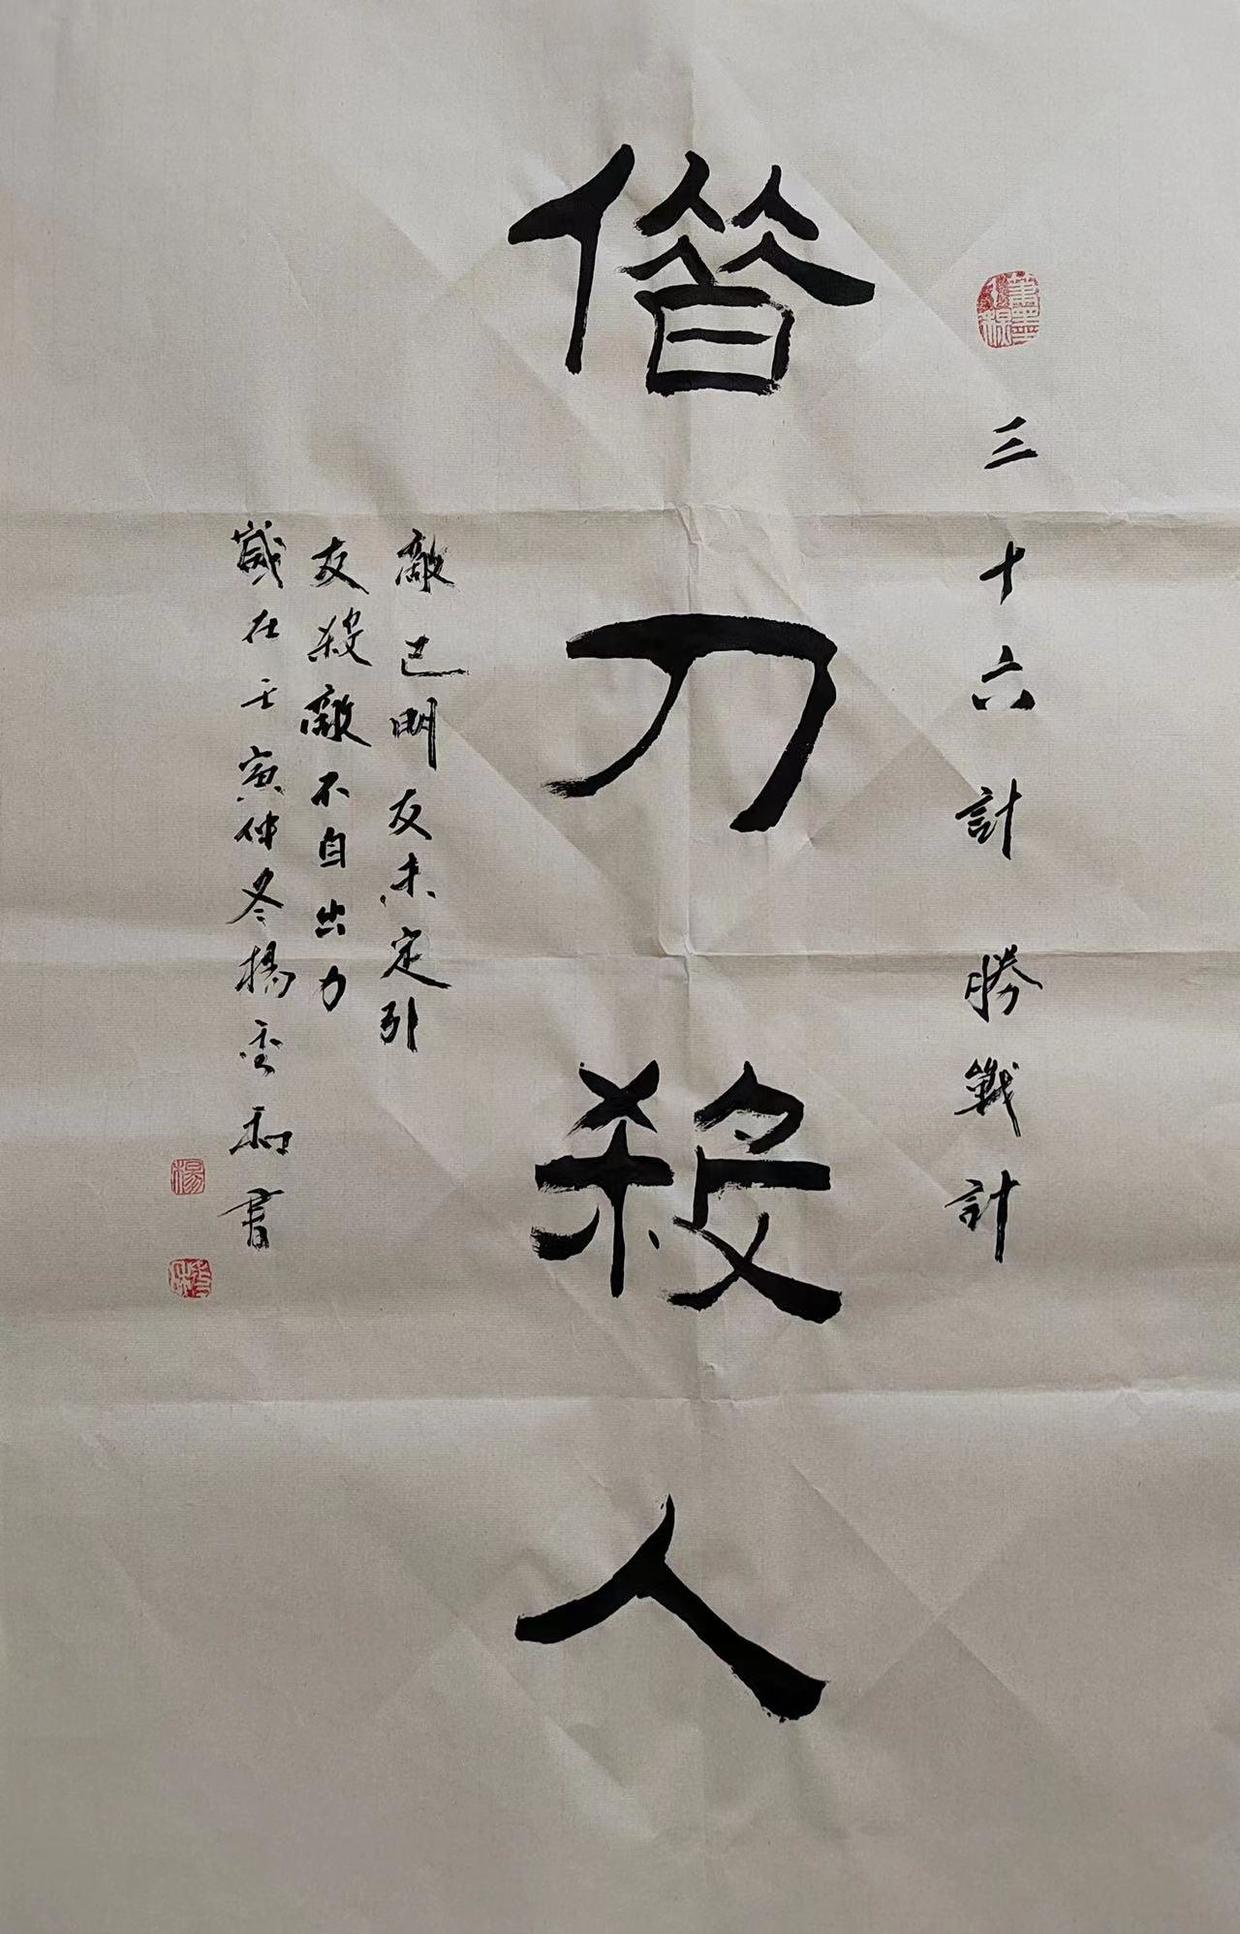 三十六計 勝戰計
借刀殺人
敵已明友未定引
友殺敵不自出力
歲在壬寅仲冬楊秀和書
楊